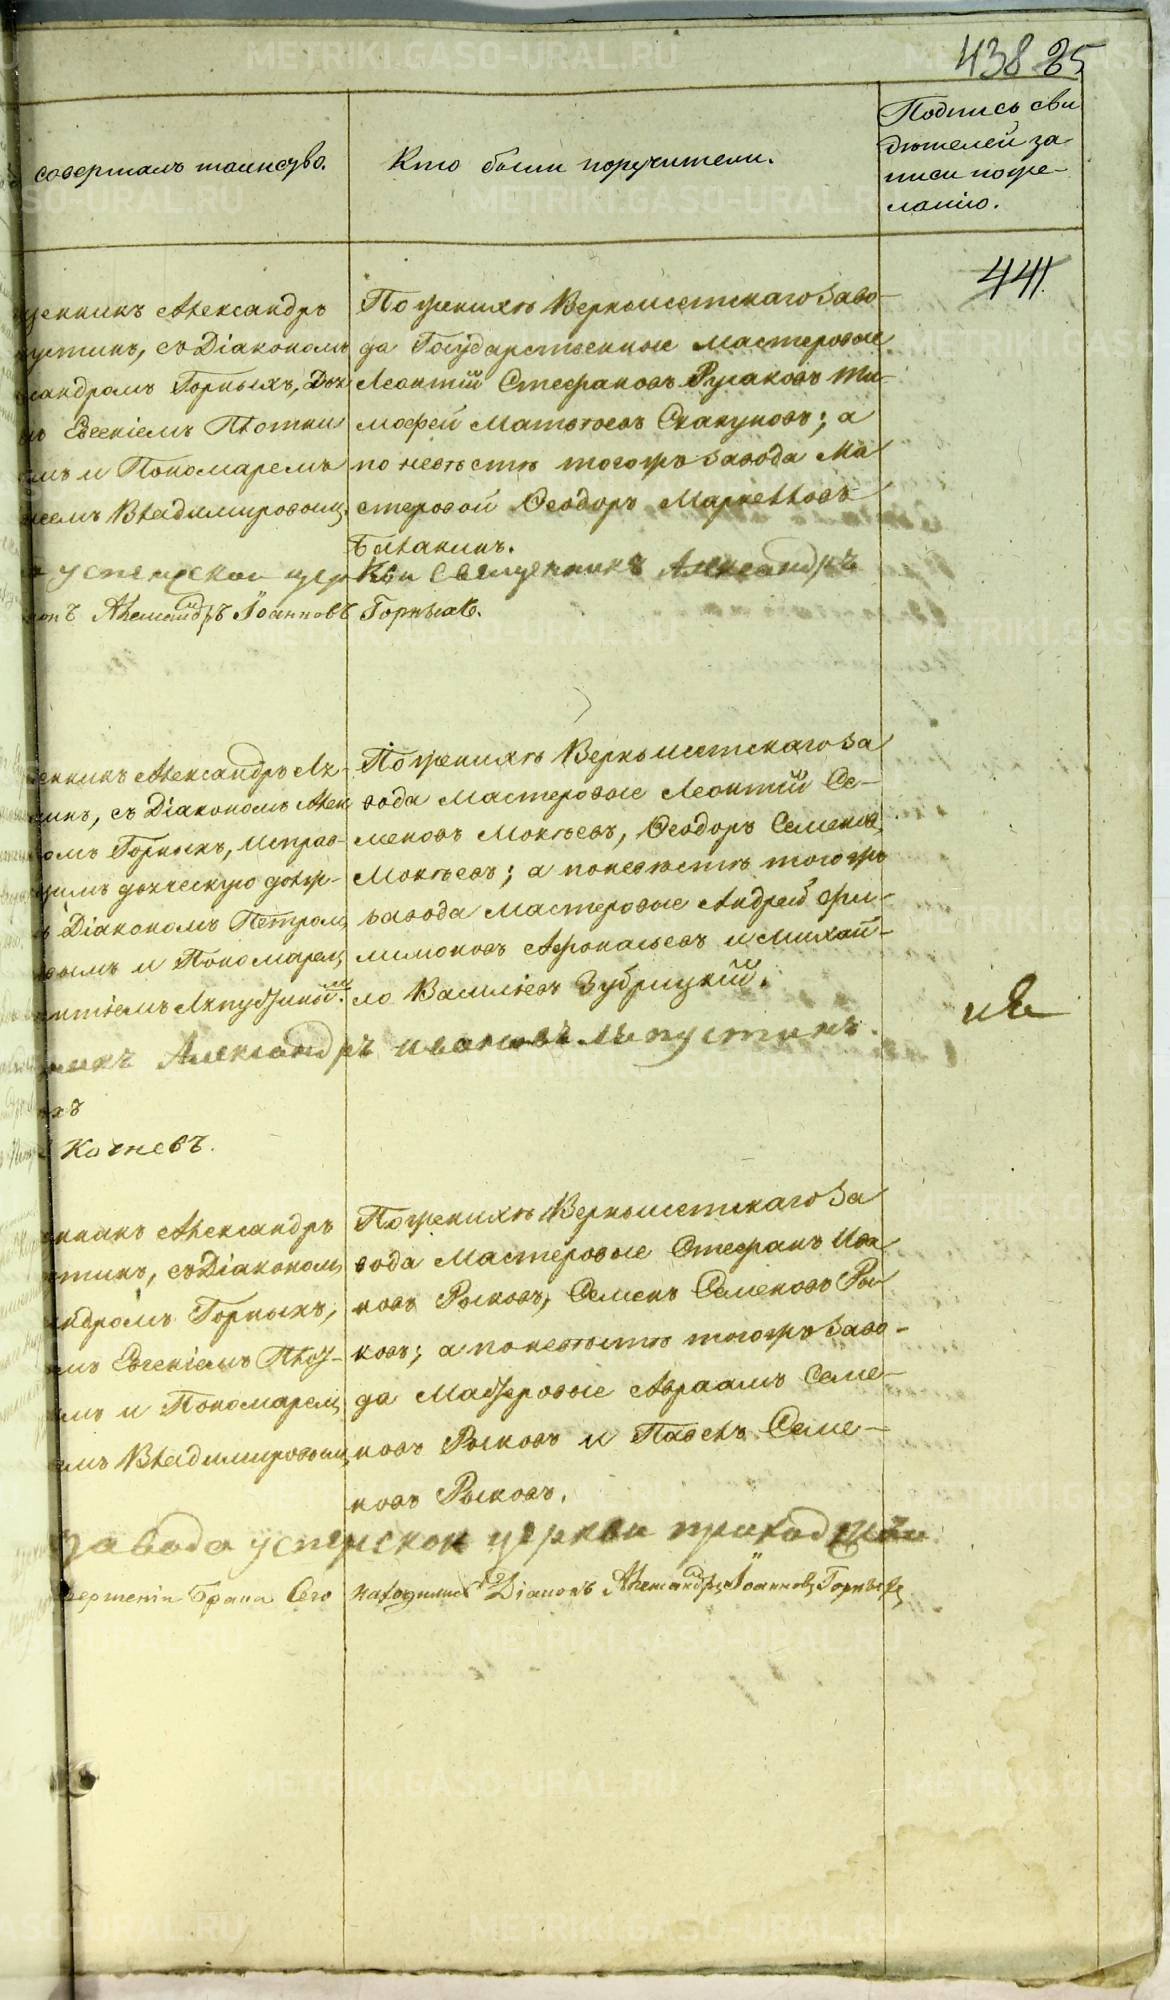 438 25
совершалъ таинство.
Кто были поручители.
Подпись сви
дѣтелей за
писи по же-
ланію.
441.
щенникъ Александръ
пустинъ, съ Діакономъ
сандромъ Горныхъ, Дьяч
Евгеніемъ Плотни
мъ и Пономаремъ
Владимировым
По женихѣ Верхъисетскаго Заво-
да Государственные мастеровые
Леонтій Стефановъ Русаковъ Ти-
мофей Матвѣевъ Скакуновъ; а
по невѣстѣ тогожъ завода Ма
стеровой Ѳеодоръ Маркеловъ
Балакинъ.
успенской церкви Священникъ Александръ
конъ Александръ Іоанновъ Горныхъ.
енникъ Александръ Ля-
инъ, съ Діакономъ Алек
омъ Горныхъ, исправ-
щимъ дьяческую долж-
Діакономъ Петром
вымъ и Пономарем
нтіемъ Ляпустиным.
По женихѣ Верхъисетскаго За
вода Мастеровые Леонтій Се-
меновъ Мокѣевъ, Ѳеодоръ Семенов
Мокѣевъ; а по невѣстѣ тогожъ
завода мастеровые Андрей Фи-
лимоновъ Афонасьевъ и Михай-
ло Васильевъ Зубрицкій.
никъ Александръ ивановъ ляпустинъ.
хъ
Кочневъ.
нникъ Александръ
стинъ, съ Діакономъ
ндромъ Горныхъ,
мъ Евгеніемъ Плот-
мъ и Пономарем
мъ Владимировым
По женихѣ Верхъисетскаго За
вода Мастеровые Стефанъ Ива
новъ Рыковъ, Семенъ Семеновъ Ры
ковъ; а по невѣстѣ тогожъ Заво-
да Мастеровые Авраамъ Семе-
новъ Рыковъ и Павелъ Семе-
новъ Рыковъ.
завода успенской церкви приходской
вершеніи Брака Сего находился Діаконъ Александръ Іоанновъ Горныхъ
METRIKI.GASO-URAL.RU